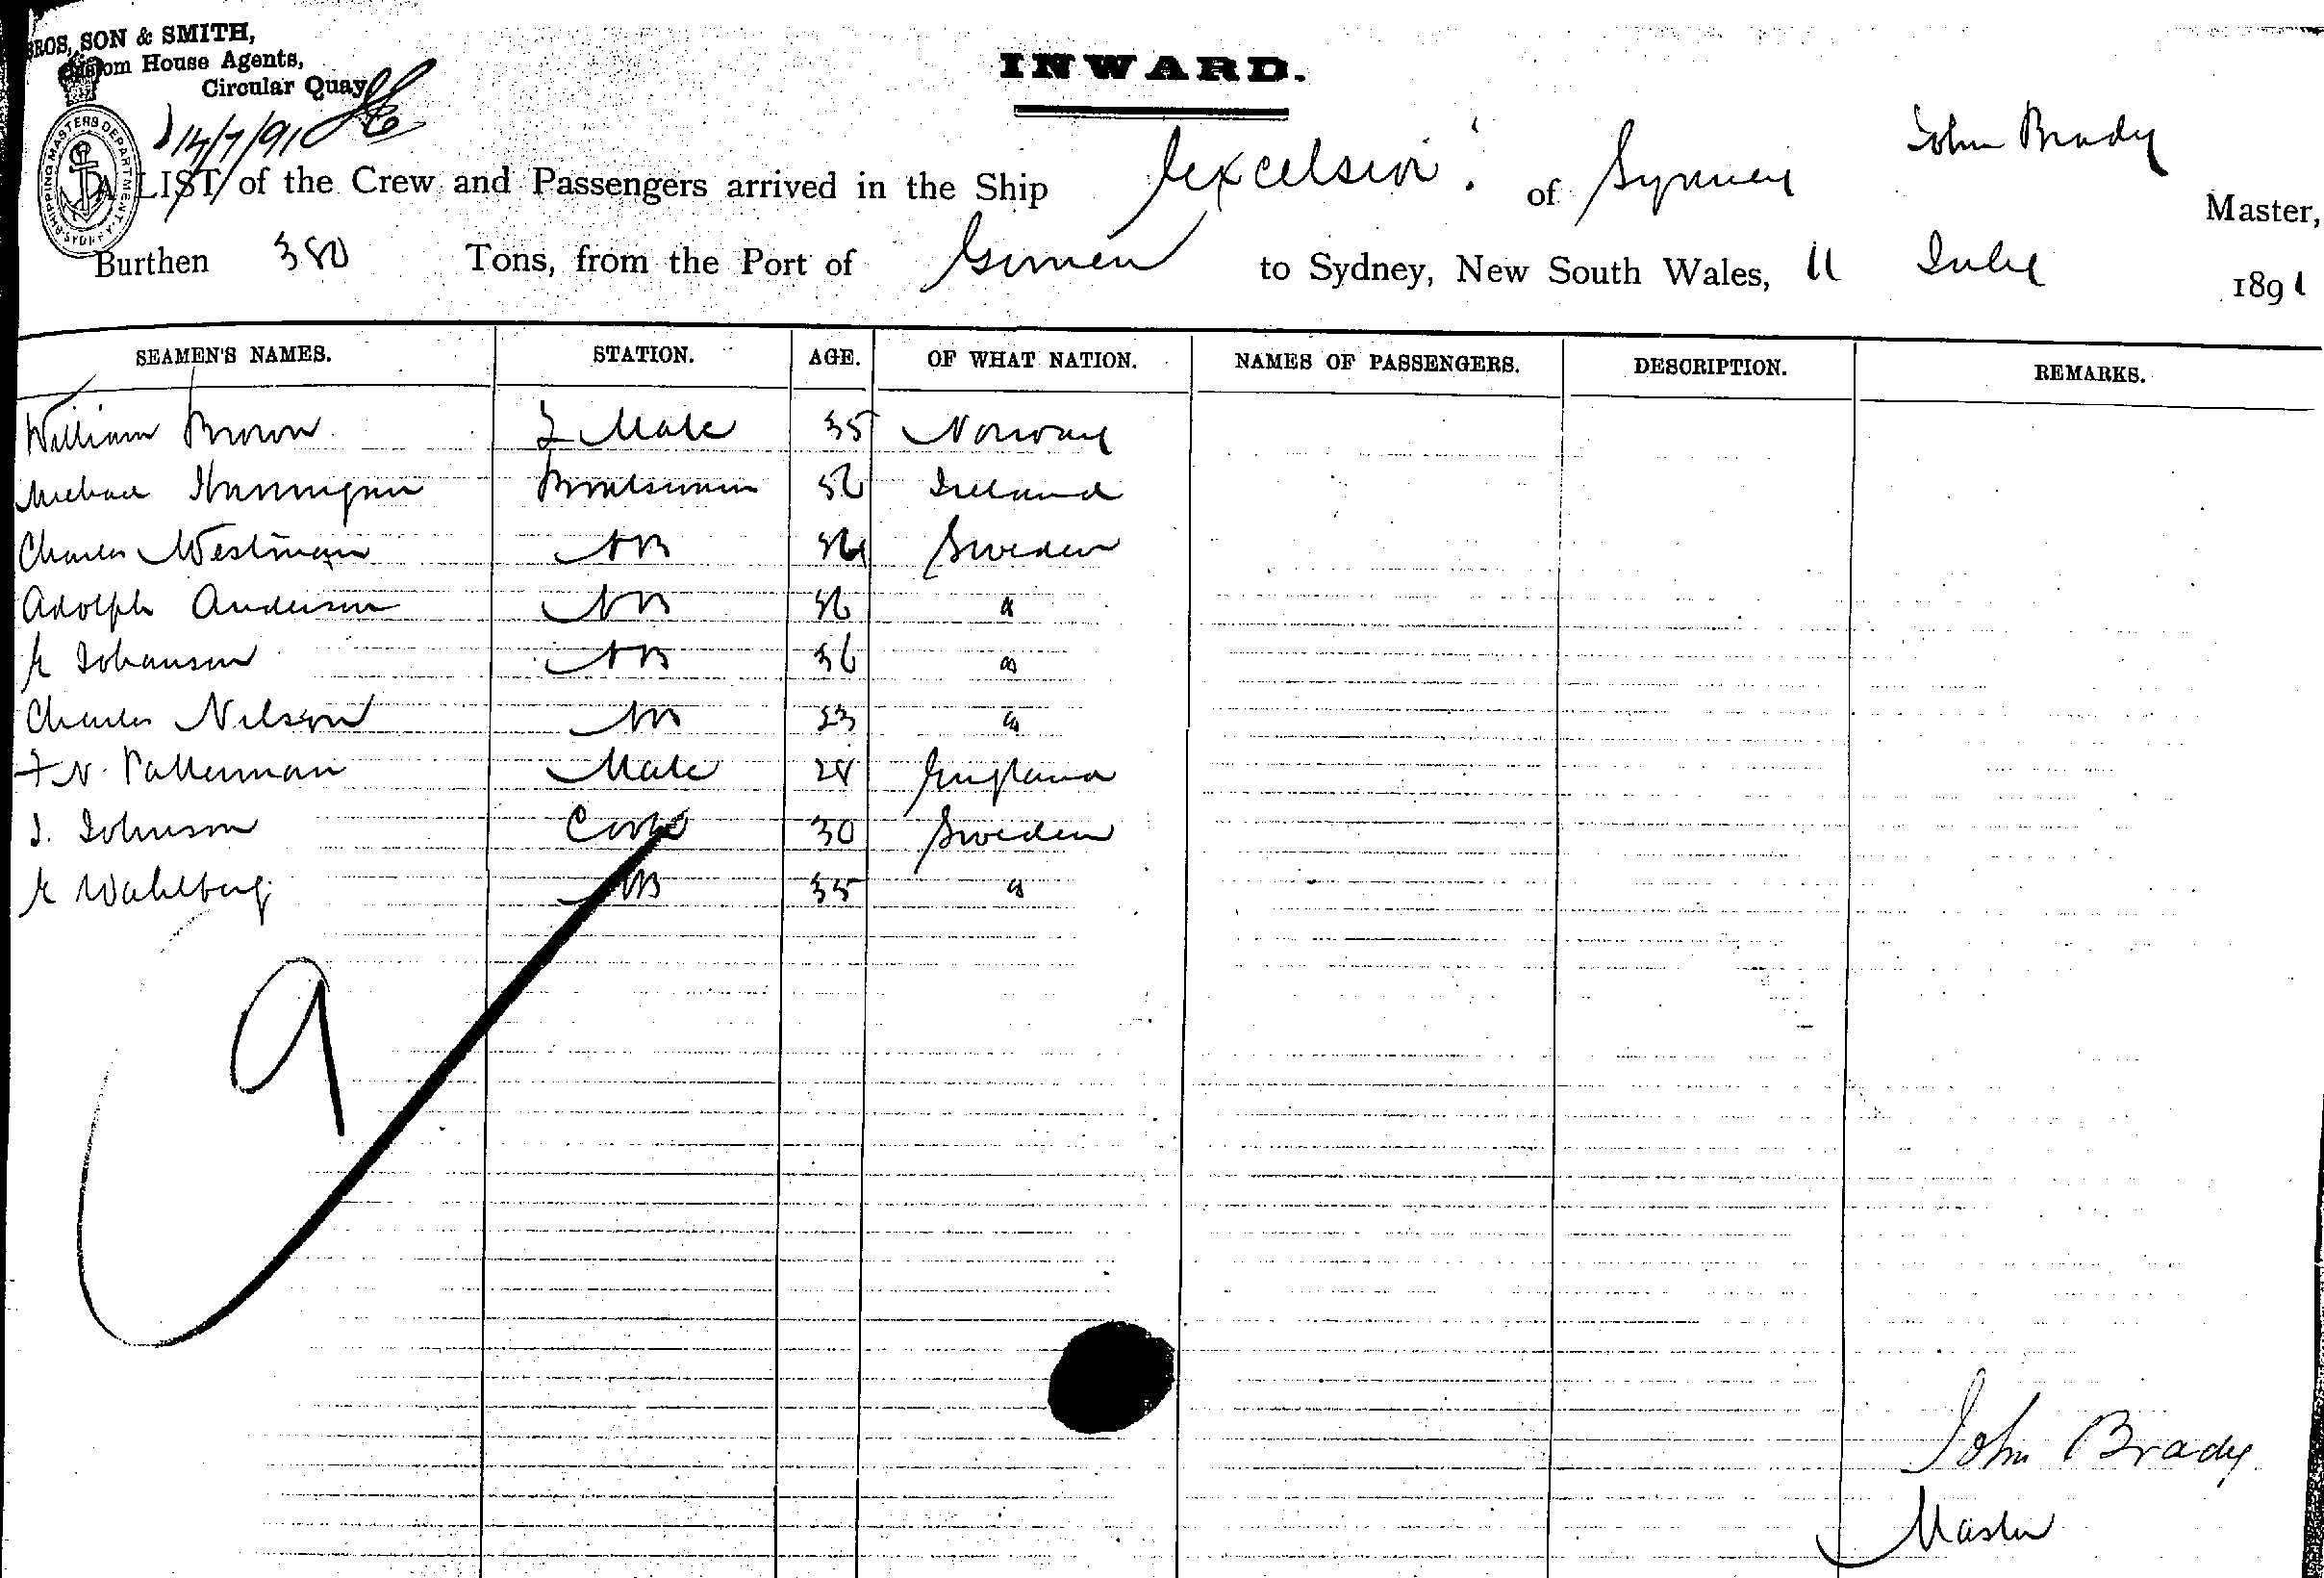 BROS, SON & SMITH,
Custom House Agents,
Circular Quay
14/7/91
SHIPPING MASTERS DEPARTMENT SYDNEY
INWARD.
A LIST of the Crew and Passengers arrived in the Ship Excelsior of Sydney John Brady Master,
Burthen 380 Tons, from the Port of Gomen to Sydney, New South Wales, 11 July 1891
SEAMEN'S NAMES. STATION. AGE. OF WHAT NATION. NAMES OF PASSENGERS. DESCRIPTION. REMARKS.
William Brown 2 Mate 35 Norway
Michael Hannigan Boatswain 56 Ireland
Charles Westman AB Sweden
Adolph Anderson AB 36 "
K Johanson AB 36 "
Charles Nilson AB 23 "
F N Patterman Mate 28 England
J. Johnson Cook 30 Sweden
K Wahlberg AB 35 "
9
John Brady
Master